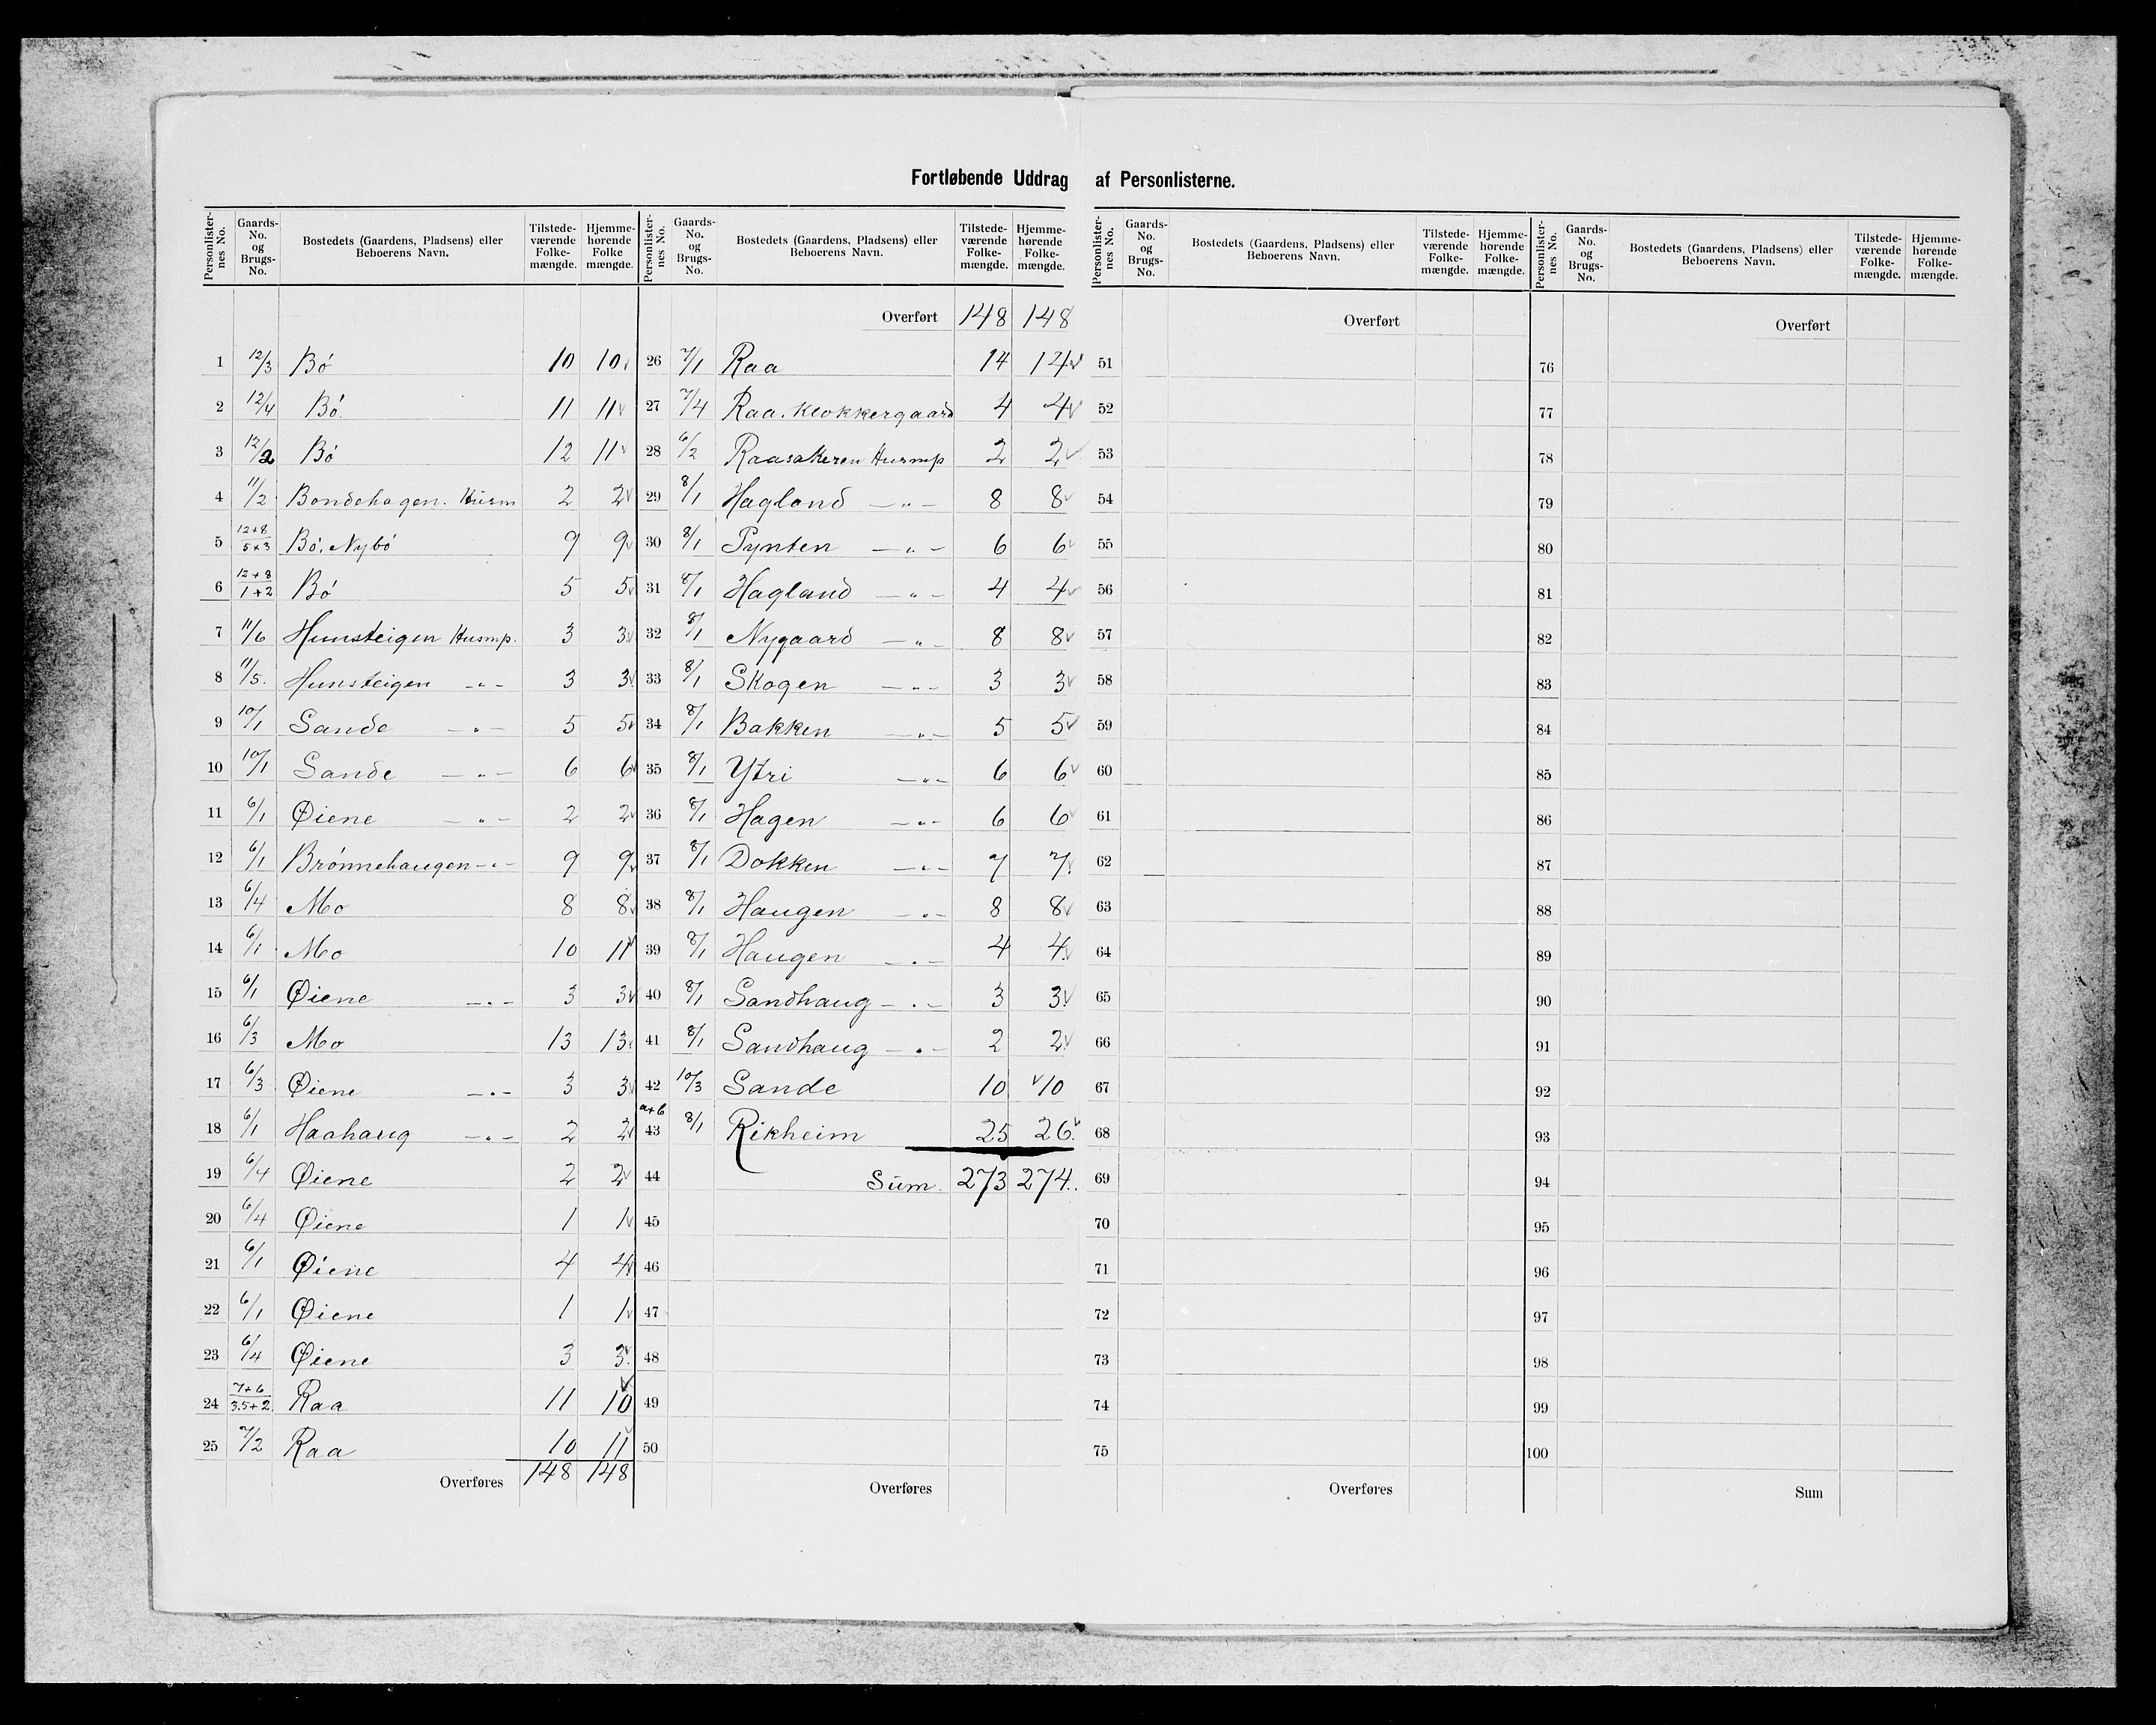 Fortløbende Uddrag af Personlisterne.
Personlister-nes No. | Gaards-No. og Brugs-No. | Bostedets (Gaardens, Pladsens) eller Beboerens Navn. | Tilstede-værende Folke-mængde. | Hjemme-hørende Folke mængde.
1 12/3 Bó 10 10
2 12/4 Bó 11 11
3 12/2 Bó 12 11
4 11/2 Bondehagen. Husm 2 2
5 12+8/5+3 Bó, Nybó 9 9
6 12+8/1+2 Bó 5 5
7 11/6 Hunsteigen Husmp. 3 3
8 11/5. Hunsteigen -"- 3 3
9 10/1 Sande -"- 5 5
10 10/1 Sande -"- 6 6
11 6/1 Øiene -"- 2 2
12 6/1 Brónnehaugen -"- 9 9
13 6/4 Mo 8 8
14 6/1 Mo 10 11
15 6/1 Øiene -"- 3 3
16 6/3 Mo 13 13
17 6/3 Øiene -"- 3 3
18 6/1 Haahaug -"- 2 2
19 6/4 Øiene 2 2
20 6/4 Øiene 1 1
21 6/1 Øiene 4 4
22 6/1 Øiene 1 1
23 6/4 Øiene 3 3
24 7+6/3.5+2. Raa 11 10
25 7/2 Raa 10 11
Overføres 148 148
Personlister-nes No. | Gaards-No. og Brugs-No. | Bostedets (Gaardens, Pladsens) eller Beboerens Navn. | Tilstede-værende Folke-mængde. | Hjemme-hørende Folke-mængde.
Overført 148 148
26 7/1 Raa 14 14
27 7/4 Raa. Klokkergaard 4 4
28 6/2 Raasakeren Husmp 2 2
29 8/1 Hagland -"- 8 8
30 8/1 Pynten -"- 6 6
31 8/1 Hagland -"- 4 4
32 8/1 Nygaard -"- 8 8
33 8/1 Skogen -"- 3 3
34 8/1 Bakken -"- 5 5
35 8/1 Ytri -"- 6 6
36 8/1 Hagen -"- 6 6
37 8/1 Dokken -"- 7 7
38 8/1 Haugen -"- 8 8
39 8/1 Haugen -"- 4 4
40 8/1 Sandhaug -"- 3 3
41 8/1 Sandhaug -"- 2 2
42 10/3 Sande 10 10
a+b 43 8/1 Rikheim 25 26
44 Sum. 273 274.
45
46
47
48
49
50
Overføres
Personlister-nes No. | Gaards-No. og Brugs-No. | Bostedets (Gaardens, Pladsens) eller Beboerens Navn. | Tilstede-værende Folke-mængde. | Hjemme-hørende Folke-mængde.
Overført
51
52
53
54
55
56
57
58
59
60
61
62
63
64
65
66
67
68
69
70
71
72
73
74
75
Overføres
Personlister-nes No. | Gaards-No. og Brugs-No. | Bostedets (Gaardens, Pladsens) eller Beboerens Navn. | Tilstede-værende Folke-mængde. | Hjemme-hørende Folke-mængde.
Overført
76
77
78
79
80
81
82
83
84
85
86
87
88
89
90
91
92
93
94
95
96
97
98
99
100
Sum